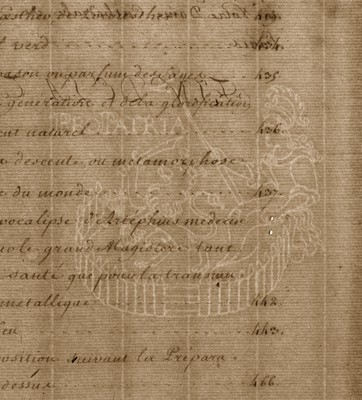 t verd 434.
ason ou parfum des sages 435.
generation et de la glorification
ent naturel 436.
descente ou metamorphose
e du monde 437.
pocalipse d'Artephius medecin
ou le grand Magistere tant
santé que pour la transmu
metallique 442.
feu 443.
position suivant la Prépara
dessus 466.
PRO PATRIA